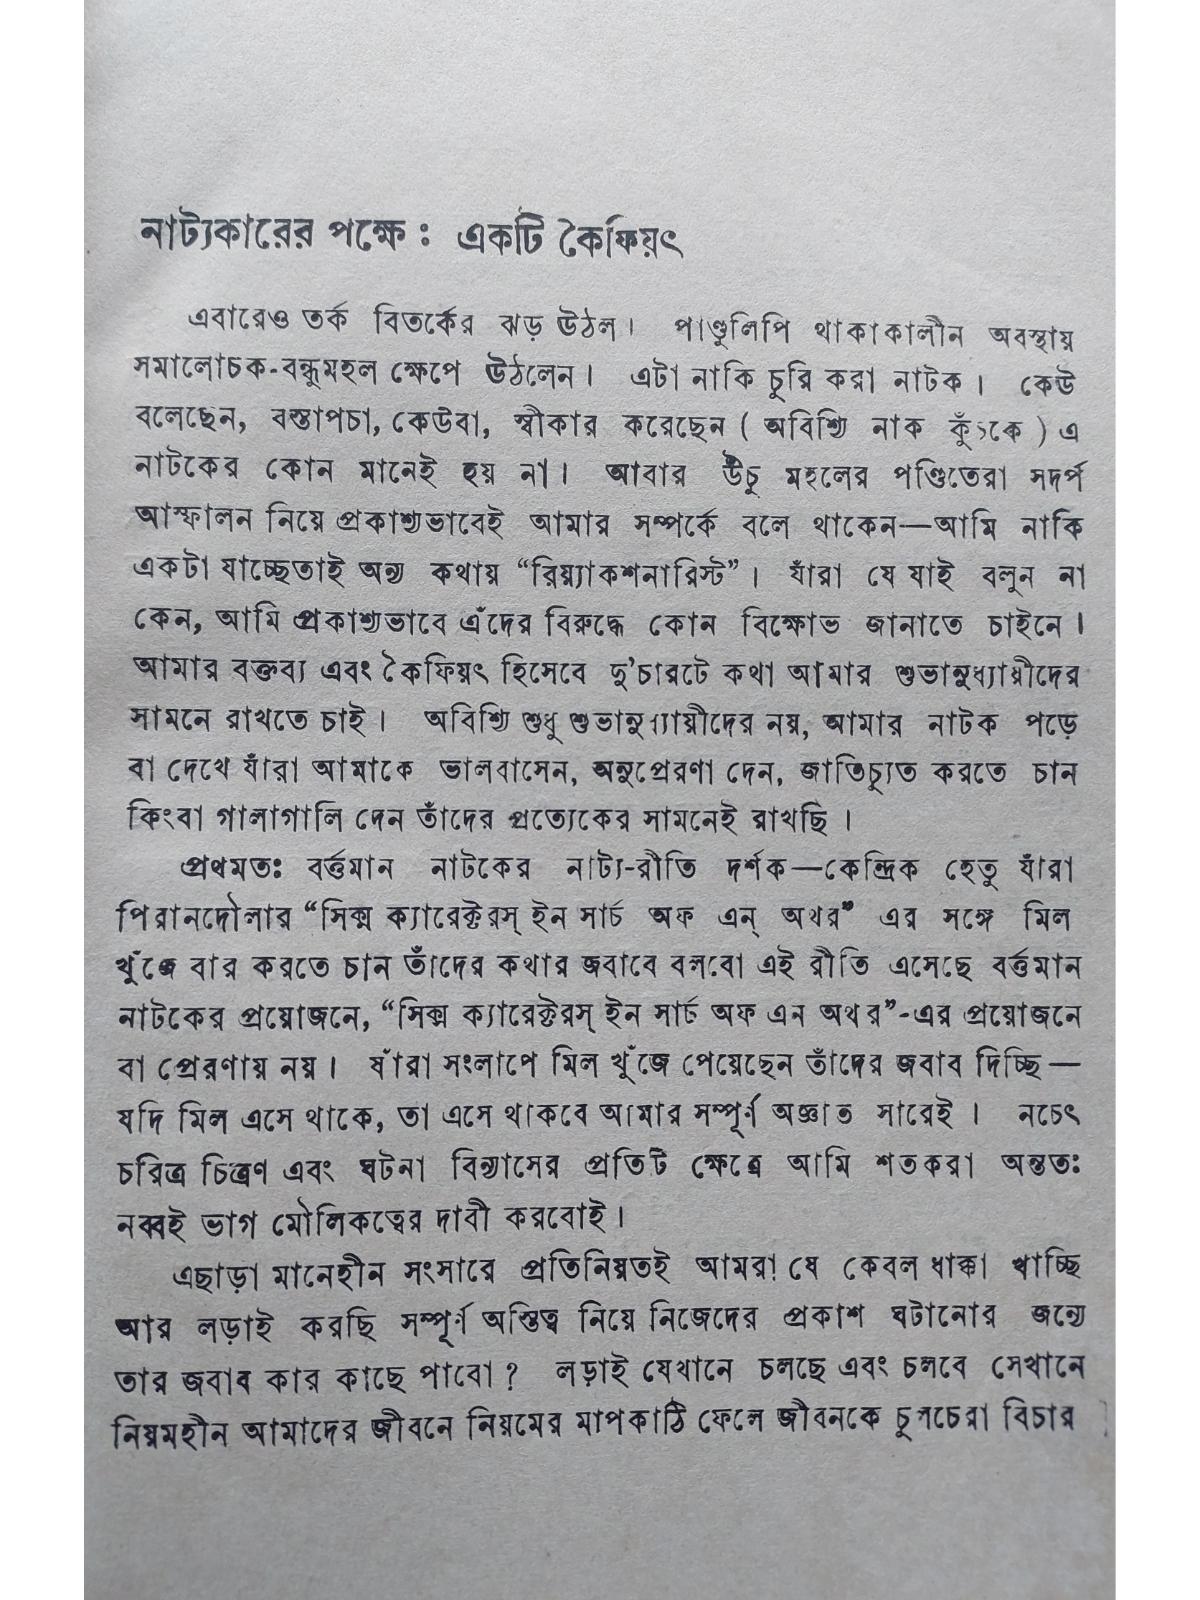 নাট্যকারের পক্ষে : একটি কৈফিয়ৎ
এবারেও তর্ক বিতর্কের ঝড় উঠল। পাণ্ডুলিপি থাকাকালীন অবস্থায়
সমালোচক-বন্ধুমহল ক্ষেপে উঠলেন। এটা নাকি চুরি করা নাটক। কেউ
বলেছেন, বস্তাপচা, কেউবা, স্বীকার করেছেন ( অবিশ্যি নাক কুঁচকে ) এ
নাটকের কোন মানেই হয় না। আবার উঁচু মহলের পণ্ডিতেরা সদর্প
আস্ফালন নিয়ে প্রকাশ্যভাবেই আমার সম্পর্কে বলে থাকেন—আমি নাকি
একটা যাচ্ছেতাই অন্য কথায় “রিয়্যাকশনারিস্ট”। যাঁরা যে যাই বলুন না
কেন, আমি প্রকাশ্যভাবে এঁদের বিরুদ্ধে কোন বিক্ষোভ জানাতে চাইনে।
আমার বক্তব্য এবং কৈফিয়ৎ হিসেবে দু'চারটে কথা আমার শুভানুধ্যায়ীদের
সামনে রাখতে চাই। অবিশ্যি শুধু শুভানুধ্যায়ীদের নয়, আমার নাটক পড়ে
বা দেখে যাঁরা আমাকে ভালবাসেন, অনুপ্রেরণা দেন, জাতিচ্যুত করতে চান
কিংবা গালাগালি দেন তাঁদের প্রত্যেকের সামনেই রাখছি।
প্রথমতঃ বর্ত্তমান নাটকের নাট্য-রীতি দর্শক—কেন্দ্রিক হেতু যাঁরা
পিরানদৌলার “সিক্স ক্যারেক্টরস্ ইন সার্চ অফ এন্ অথর” এর সঙ্গে মিল
খুঁজে বার করতে চান তাঁদের কথার জবাবে বলবো এই রীতি এসেছে বর্ত্তমান
নাটকের প্রয়োজনে, “সিক্স ক্যারেক্টরস্ ইন সার্চ অফ এন অথর”-এর প্রয়োজনে
বা প্রেরণায় নয়। যাঁরা সংলাপে মিল খুঁজে পেয়েছেন তাঁদের জবাব দিচ্ছি—
যদি মিল এসে থাকে, তা এসে থাকবে আমার সম্পূর্ণ অজ্ঞাত সারেই। নচেৎ
চরিত্র চিত্রণ এবং ঘটনা বিন্যাসের প্রতিটি ক্ষেত্রে আমি শতকরা অন্ততঃ
নব্বই ভাগ মৌলিকত্বের দাবী করবোই।
এছাড়া মানেহীন সংসারে প্রতিনিয়তই আমরা যে কেবল ধাক্কা খাচ্ছি
আর লড়াই করছি সম্পূর্ণ অস্তিত্ব নিয়ে নিজেদের প্রকাশ ঘটানোর জন্যে
তার জবাব কার কাছে পাবো? লড়াই যেখানে চলছে এবং চলবে সেখানে
নিয়মহীন আমাদের জীবনে নিয়মের মাপকাঠি ফেলে জীবনকে চুলচেরা বিচার